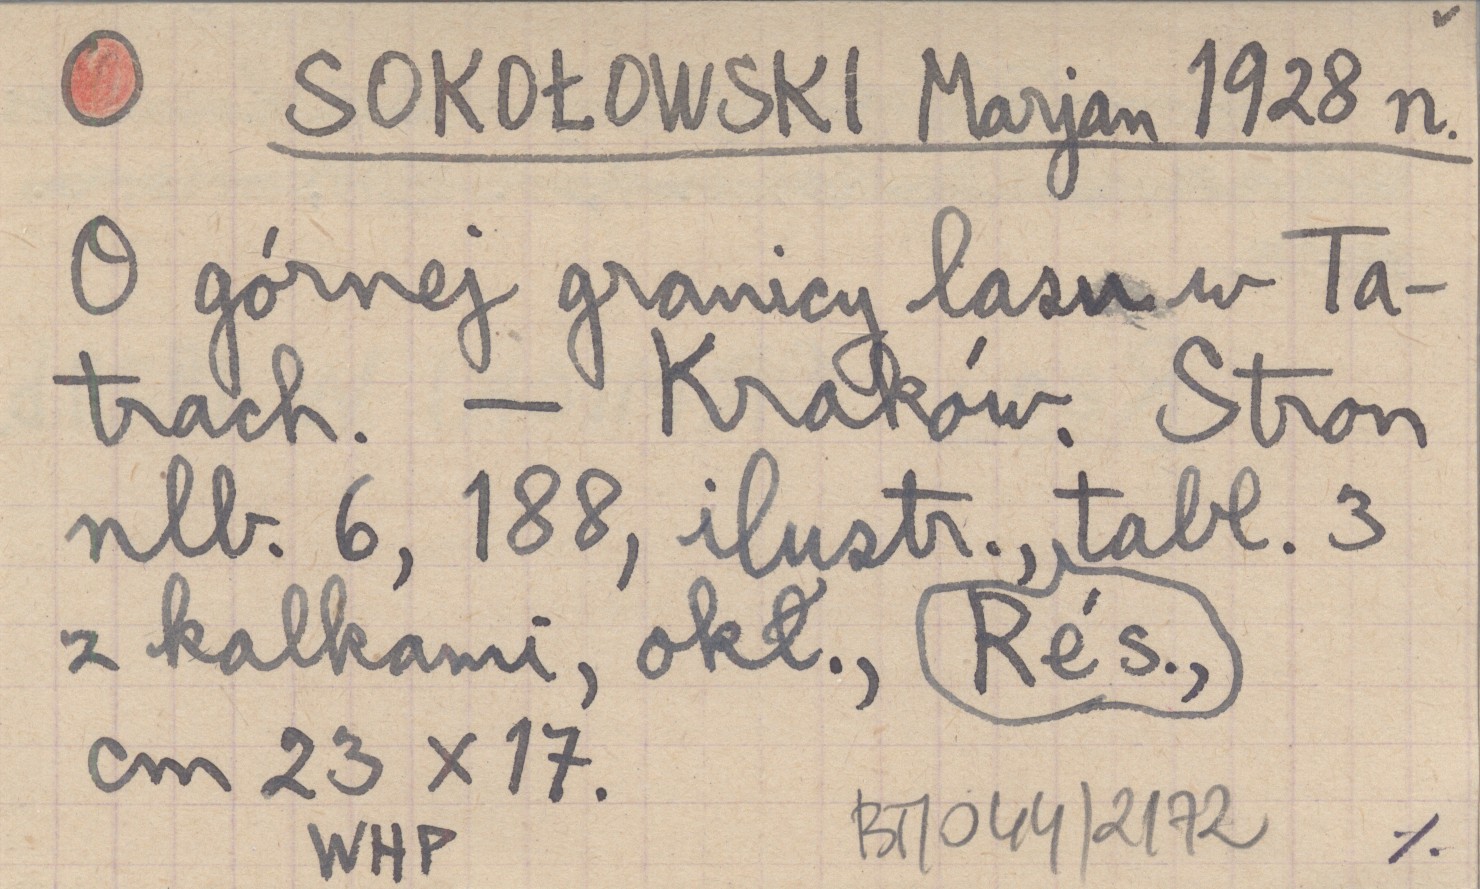 SOKOŁOWSKI Marjan 1928 n.
O górnej granicy lasu w Ta-
trach. — Kraków. Stron
nlb. 6, 188, ilustr., tabl. 3
z kalkami, okł., Rés.,
cm 23 x 17.
WHP
BT/044/2172